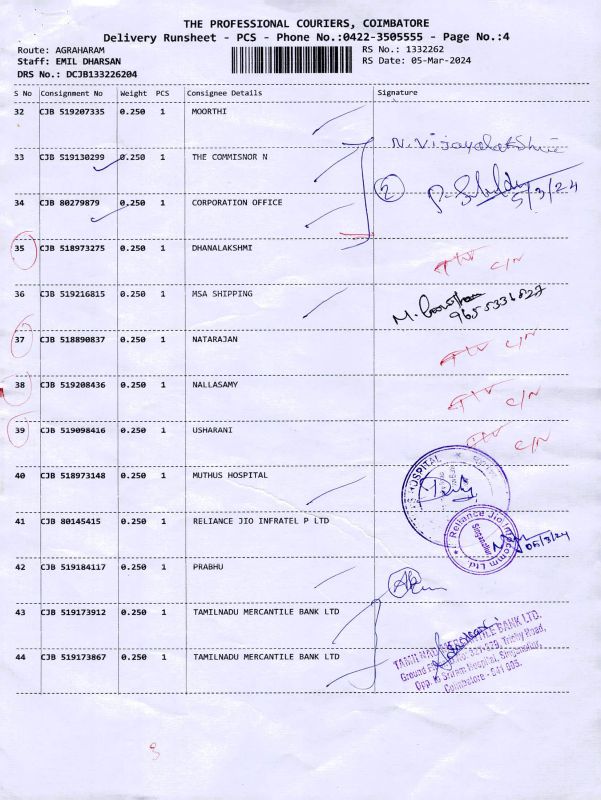 THE PROFESSIONAL COURIERS, COIMBATORE
Delivery Runsheet - PCS - Phone No.:0422-3505555 - Page No.:4
Route: AGRAHARAM RS No.: 1332262
Staff: EMIL DHARSAN RS Date: 05-Mar-2024
DRS No.: DCJB133226204
S No Consignment No Weight PCS Consignee Details Signature
32 CJB 519207335 0.250 1 MOORTHI
N. Vijayalakshmi
33 CJB 519130299 0.250 1 THE COMMISNOR N
2
5/3/24
34 CJB 80279879 0.250 1 CORPORATION OFFICE
35 CJB 518973275 0.250 1 DHANALAKSHMI C/N
36 CJB 519216815 0.250 1 MSA SHIPPING M.
37 CJB 518890837 0.250 1 NATARAJAN C/N
38 CJB 519208436 0.250 1 NALLASAMY C/N
39 CJB 519098416 0.250 1 USHARANI C/N
40 CJB 518973148 0.250 1 MUTHUS HOSPITAL HOSPITAL
41 CJB 80145415 0.250 1 RELIANCE JIO INFRATEL P LTD
Reliance Jio Infocomm Ltd.
Singanallur
05/3/24
42 CJB 519184117 0.250 1 PRABHU
43 CJB 519173912 0.250 1 TAMILNADU MERCANTILE BANK LTD
44 CJB 519173867 0.250 1 TAMILNADU MERCANTILE BANK LTD
TAMIL NADU MERCANTILE BANK LTD.
Trichy Road,
Hospital, Singanallur,
Coimbatore - 641 005.